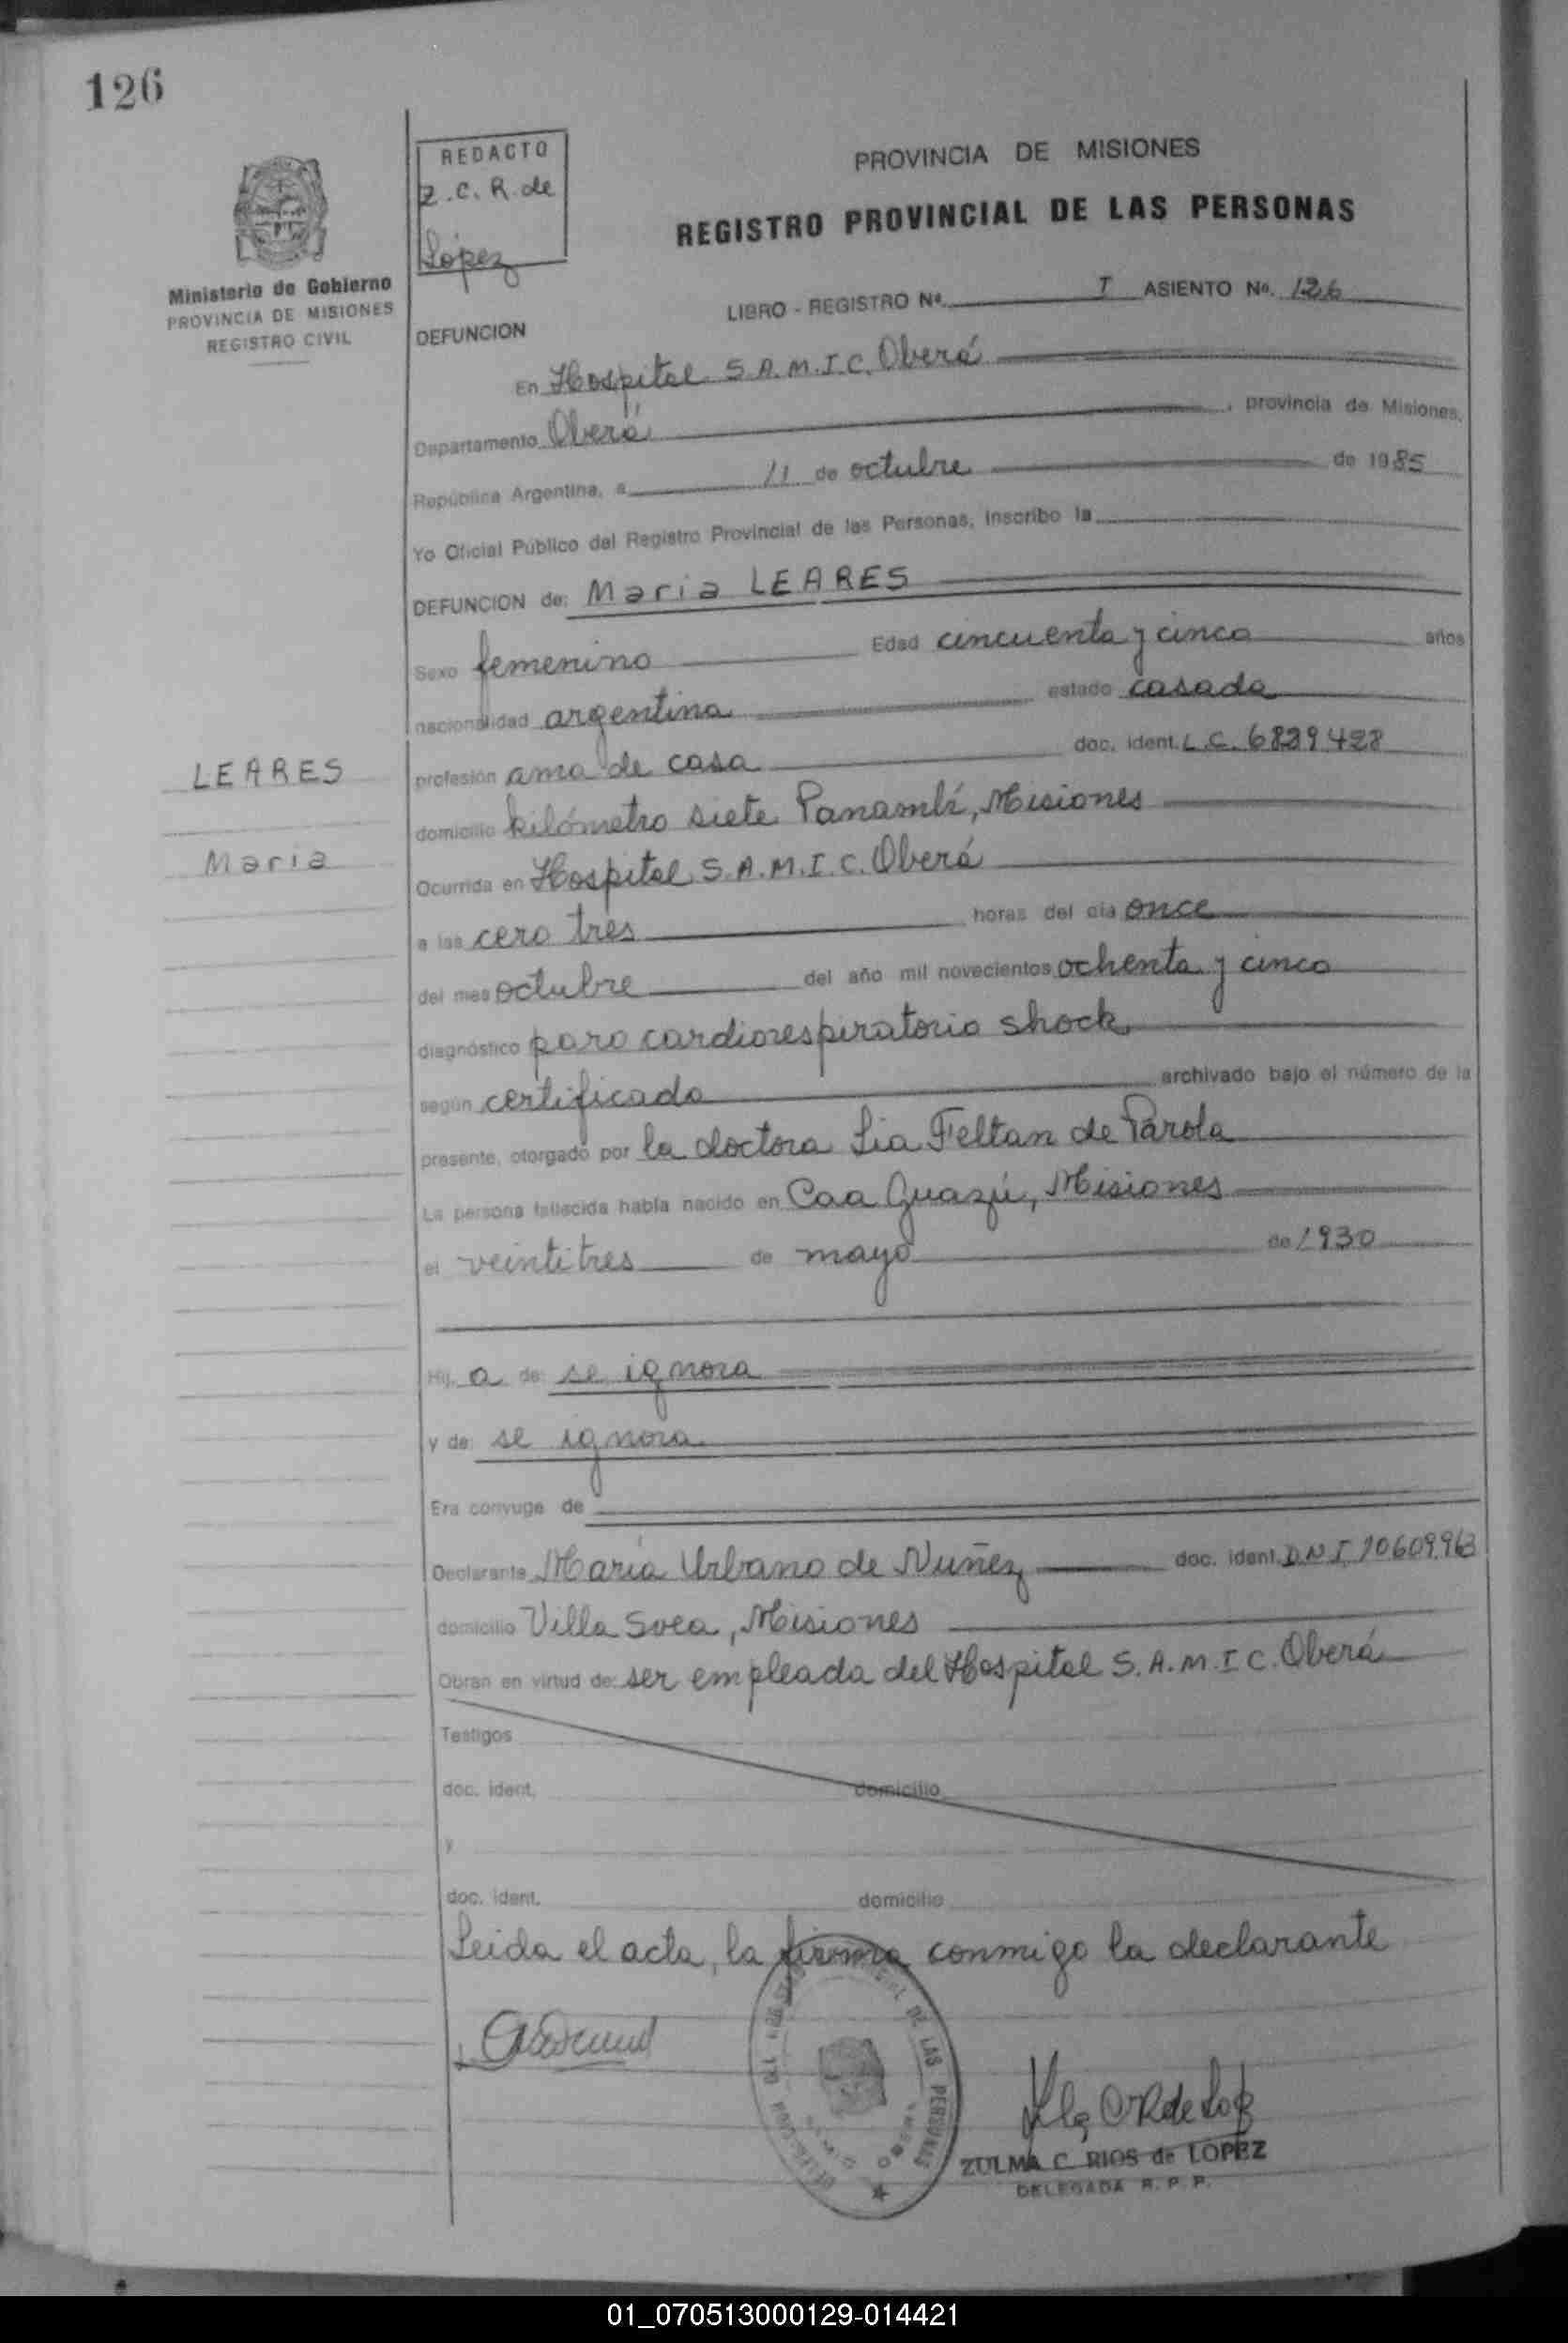 126
REDACTO
Z. C. R. de
López
Ministerio de Gobierno
PROVINCIA DE MISIONES
REGISTRO CIVIL
PROVINCIA DE MISIONES
REGISTRO PROVINCIAL DE LAS PERSONAS
LIBRO - REGISTRO Nº I ASIENTO Nº. 126
DEFUNCION
En Hospital S.A.M.I.C. Oberá
Departamento Oberá, provincia de Misiones,
República Argentina, a 11 de octubre de 1985
Yo Oficial Público del Registro Provincial de las Personas, inscribo la
DEFUNCION de: Maria LEARES
Sexo femenino Edad cincuenta y cinco años
nacionalidad argentina estado casada
LEARES
Maria
profesión ama de casa doc. ident. L.C. 6829428
domicilio kilómetro siete Panambí, Misiones
Ocurrida en Hospital S.A.M.I.C. Oberá
a las cero tres horas del día once
del mes octubre del año mil novecientos ochenta y cinco
diagnóstico paro cardiorespiratorio shock
según certificado archivado bajo el número de la
presente, otorgado por la doctora Lia Feltan de Parola
La persona fallecida había nacido en Caa Guazú, Misiones
el veintitres de mayo de 1930
Hij a de: se ignora
y de: se ignora
Era conyuge de
Declarante María Urbano de Nuñez doc. ident. D.N.I 10609963
domicilio Villa Svea, Misiones
Obran en virtud de: ser empleada del Hospital S.A.M.I.C. Oberá
Testigos
doc. ident. domicilio
y
doc. ident. domicilio
Leida el acta, la firma conmigo la declarante
DE LAS PERSONAS
ZULMA C. RIOS de LOPEZ
DELEGADA R. P. P.
01_070513000129-014421